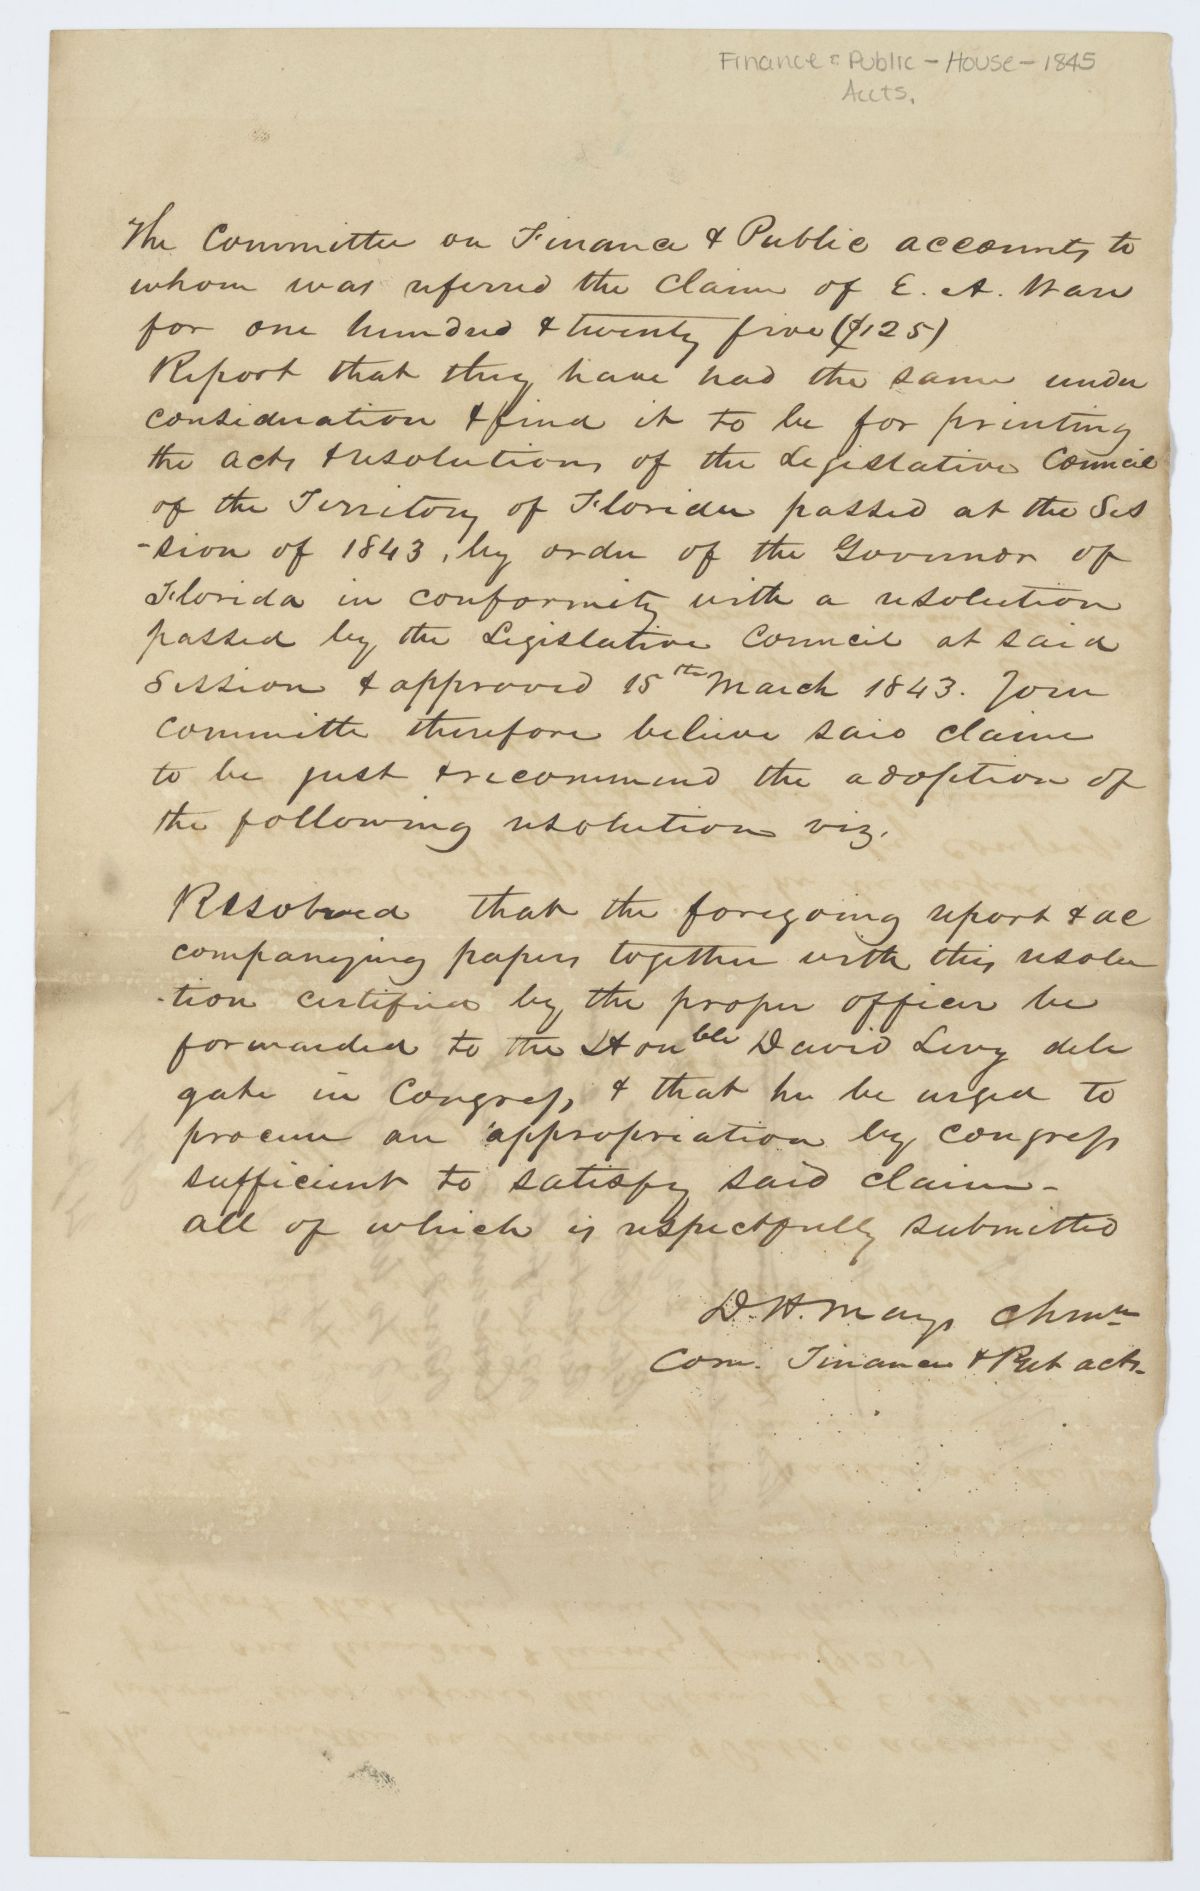 Finance & Public - House - 1845
Accts.
The Committee on Finance & Public accounts to
whom was referred the claim of E. A. Ware
for one hundred & twenty five ($125)
Report that they have had the same under
consideration & find it to be for printing
the acts & resolutions of the Legislative Council
of the Territory of Florida passed at the Ses
-sion of 1843, by order of the Governor of
Florida in conformity with a resolution
passed by the Legislative Council at said
Session & approved 15th March 1843. Your
Committee therefore believe said claim
to be just & recommend the adoption of
the following resolution viz.
Resolved that the foregoing report & ac
companying papers together with this resolu
-tion certified by the proper officer be
forwarded to the Honble David Levy dele
gate in Congress, & that he be urged to
procure an appropriation by Congress
sufficient to satisfy said claim -
all of which is respectfully submitted
D. H. Mays Chmn
Com. Finance & Pub acts.